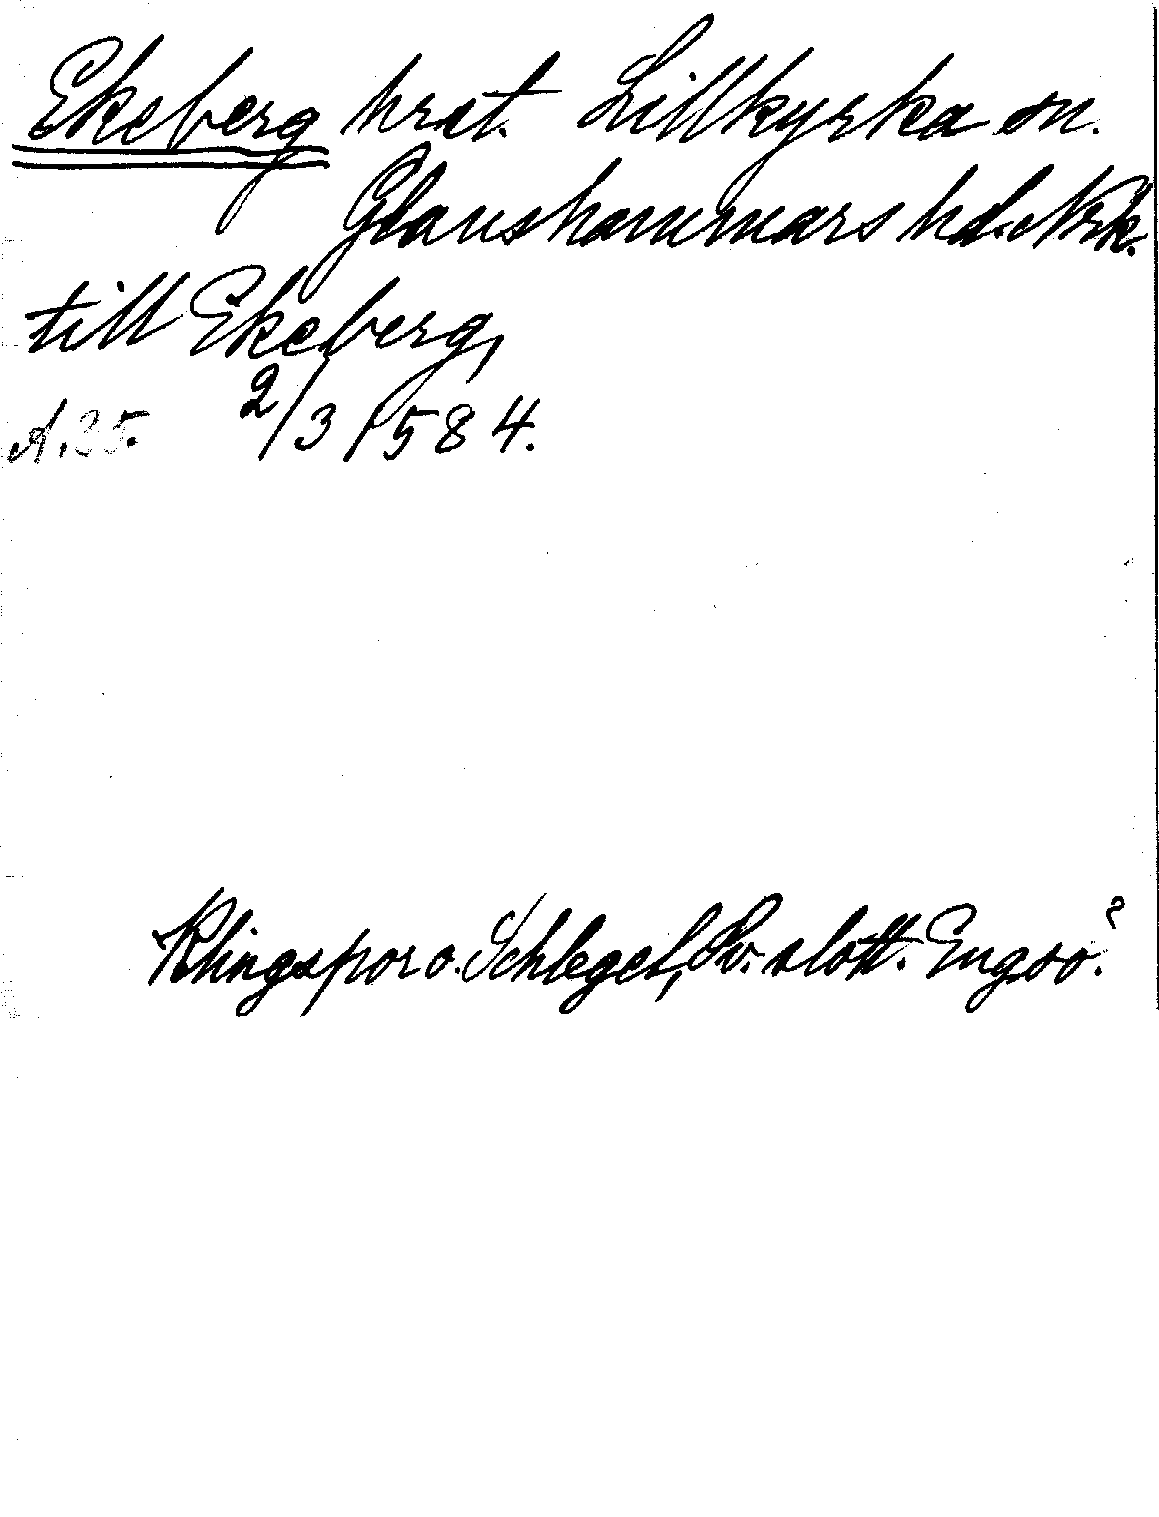 Ekeberg hrst. Lillkyrka sn.
Glanshammars hd. Nrk.
till Ekeberg,
A. 35. 2/3 1584.
Klingspor o. Schlegel, Sv. slott. Engsö?